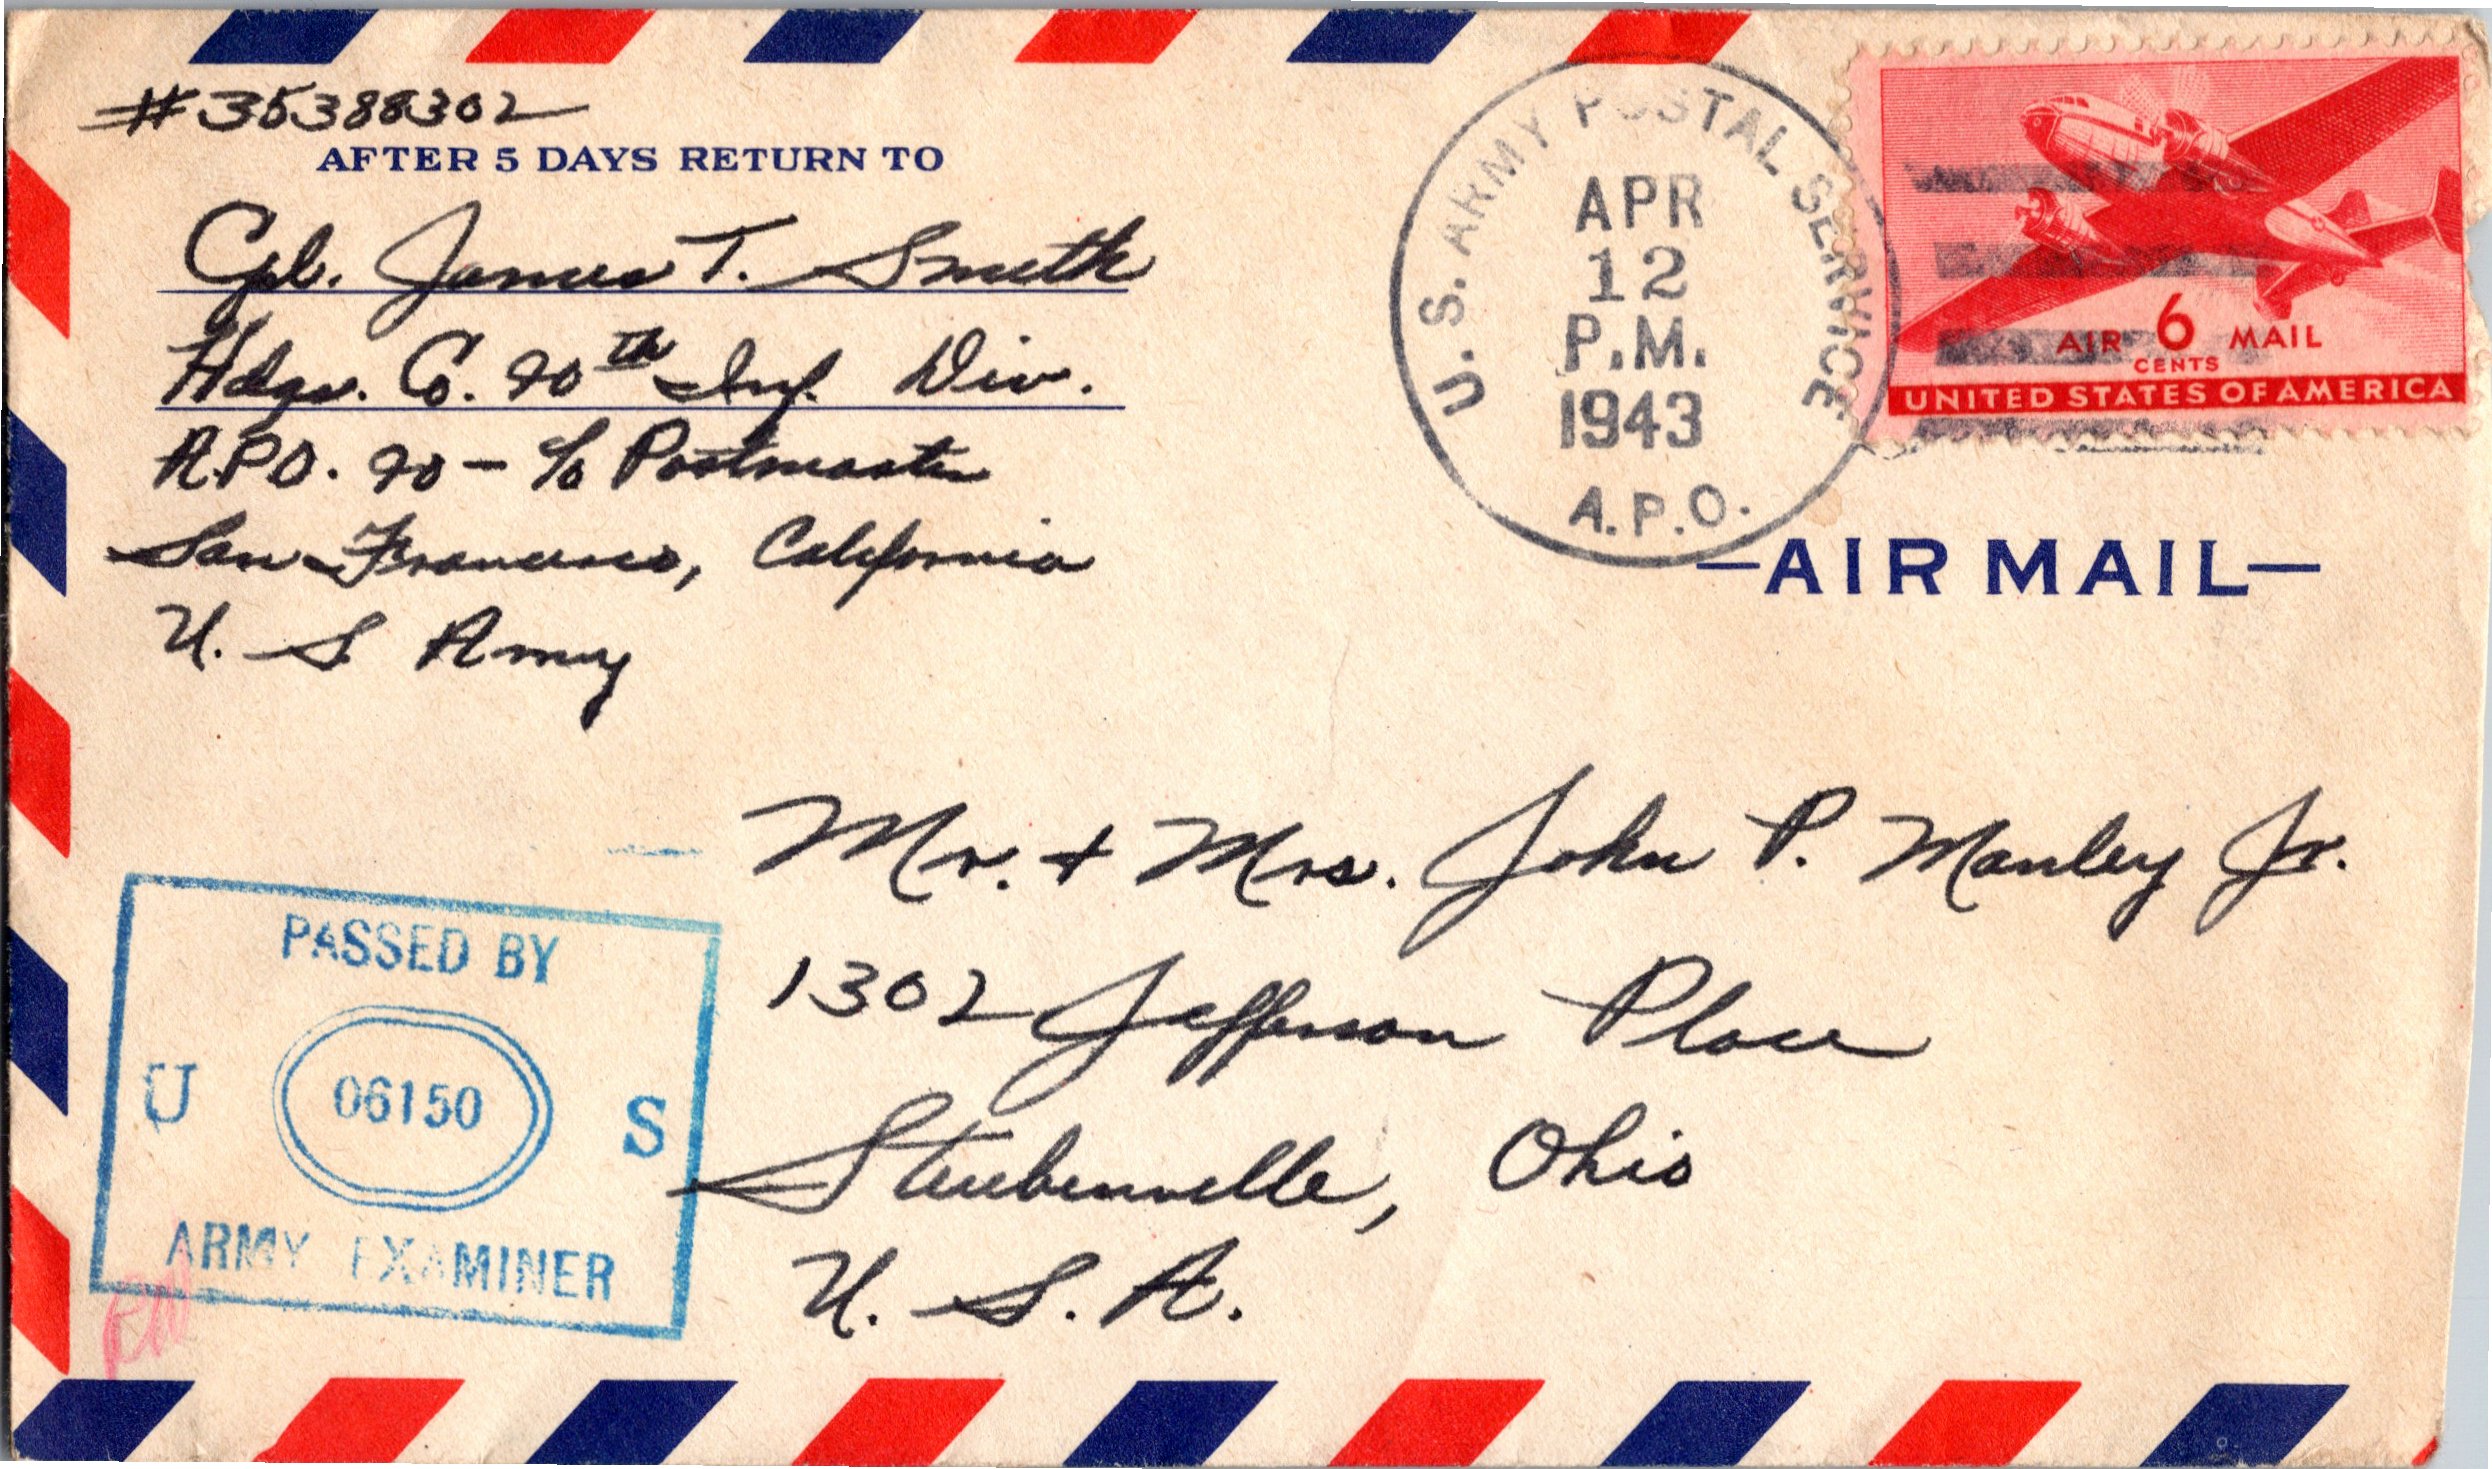 #35388302
AFTER 5 DAYS RETURN TO
Cpl. James T. Smith
Hdqs. Co. 40th Inf. Div.
A.P.O. 40 - c/o Postmaster
San Francisco, California
U. S. Army
U.S. ARMY POSTAL SERVICE
APR
12
P.M.
1943
A.P.O.
AIR 6 MAIL
CENTS
UNITED STATES OF AMERICA
—AIR MAIL—
Mr. + Mrs. John P. Manley Jr.
1302 Jefferson Place
Steubenville, Ohio
U. S. A.
PASSED BY
U 06150 S
ARMY EXAMINER